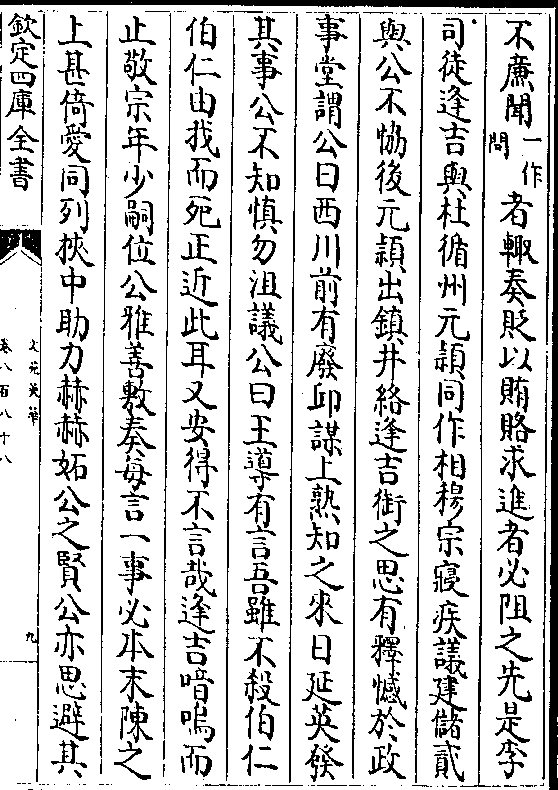 不廉聞一作問者輙奏貶以賄賂求進者必阻之先是李
司徒逢吉與杜循州元頴同作相穆宗寢疾議建儲貳
與公不恊後元頴出鎮井絡逢吉銜之思有釋憾於政
事堂謂公曰西川前有廢卭謀上熟知之來日延英發
其事公不知慎勿沮議公曰王導有言吾雖不殺伯仁
伯仁由我而死正近此耳又安得不言哉逢吉喑嗚而
止敬宗年少嗣位公雅善敷奏每言一事必本末陳之
上甚倚愛同列挾中助力赫赫妬公之賢公亦思避其
欽定四庫全書
文苑英華
卷八百八十八
九